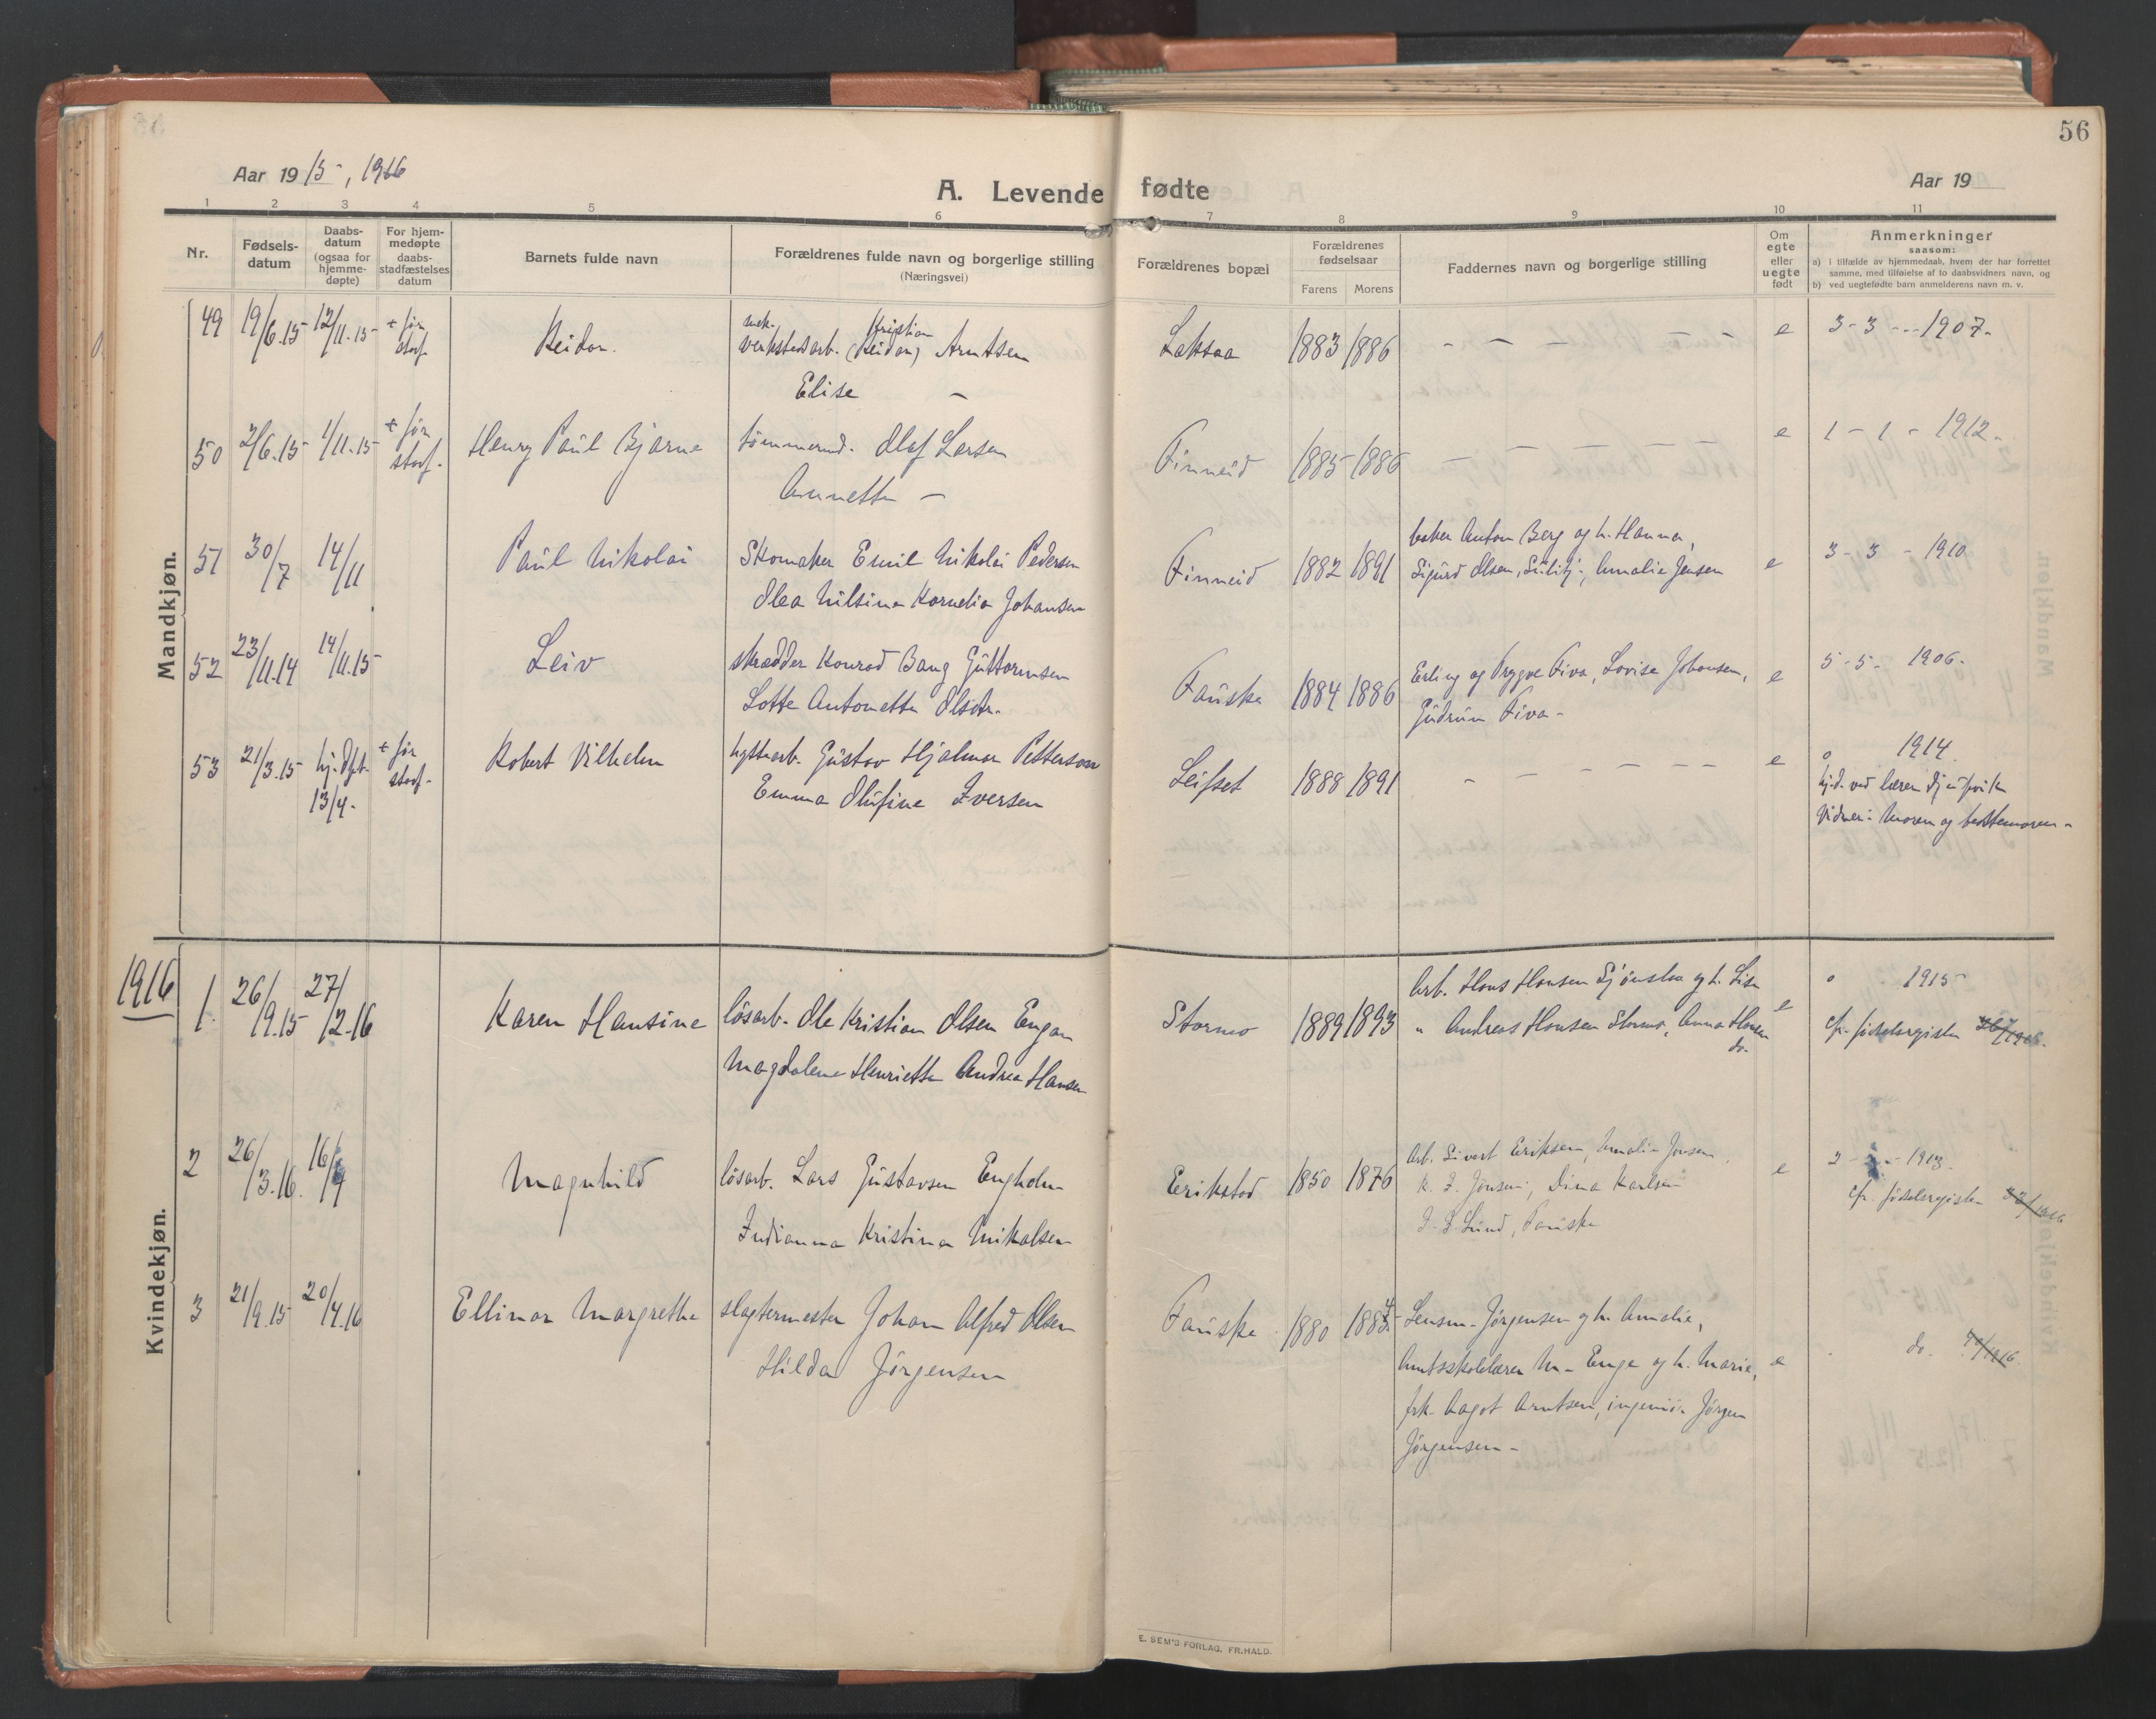 56
Aar 1915, 1916
A. Levende fødte
Aar 19
1 2 3 4 5 6 7 8 9 10 11
Nr.
Fødsels-
datum
Daabs-
datum
(ogsaa for
hjemme-
døpte)
For hjem-
medøpte
daabs-
stadfæstelses
datum
Barnets fulde navn
Forældrenes fulde navn og borgerlige stilling
(Næringsvei)
Forældrenes bopæl
Forældrenes
fødselsaar
Farens Morens
Faddernes navn og borgerlige stilling
Om
egte
eller
uegte
født
Anmerkninger
saasom:
a) i tilfælde av hjemmedaab, hvem der har forrettet
samme, med tilføielse af to daabsvidners navn, og
b) ved uegtefødte barn anmelderens navn m. v.
Mandkjøn.
49 19/6.15 12/11.15 + før stadf. Reidar. mek. verkstedsarb. (Reidar) Kristian Arntsen Laksaa 1883 1886 - - - - - e 3-3 - 1907.
Elise -
50 2/6.15 1/11.15 + før stadf. Henry Paul Bjarne tømmermd. Olaf Larsen Finneid 1885 1886 - - - - - - e 1-1- 1912.
Annette -
51 30/7 14/11 Paul Nikolai Skomaker Emil Nikolai Pedersen Finneid 1882 1891 baker Anton Berg og h. Hanna, e 3-3 - 1910
Olea Nilsine Kornelia Johansen Sigurd Olsen, Sulitj., Amalie Jensen
52 23/11.14 14/11.15 Leiv skrædder Konrad Bang Guttormsen Fauske 1884 1886 Erling og Trygve Fiva, Lovise Johansen, e 5-5- 1906.
Lotte Antonette Olsdtr. Gudrun Fiva-
53 21/3.15 hj. døpt 13/4- + før stadf. Robert Vilhelm hyttearb. Gustav Hjalmar Petterson Leifset 1888 1891 - - - - - - e 0 1914.
Emma Olufine Iversen hj.d. ved lærer Djupvik
Vidner: Moren og bestemoren-
1916
Kvindekjøn.
1. 26/9.15 27/2.16 Karen Hansine løsarb. Ole Kristian Olsen Engan Stormo 1889 1893 Arb. Hans Hansen Sjønstaa og h. Lise e 0 1915
Magdalene Henriette Andrea Hansen " Andreas Hansen Stormo, Anna Hansen do. cfr. fødselsregister
2 26/3.16. 16/4 Magnhild løsarb. Lars Gustavsen Engholm Erikstad 1850 1876 Arb. Sivert Eriksen, Amalie Jensen, e 2- - 1913.
Indianna Kristine Mikalsen K. J. Jensen, Dina Karlsen cfr. fødselsregister
Lund, Fauske
3 21/9.15 20/4.16 Ellinor Margrethe slagtermester Johan Alfred Olsen Fauske 1880 1884 Lensm. Jørgensen og h. Amalie,
Hilda Jørgensen Amtsskolelærer M. Enge og h. Marie, e do.
frk. Aagot Arntsen, ingeniør Jørgen
Jørgensen-
E. SEM'S FORLAG, FR.HALD.